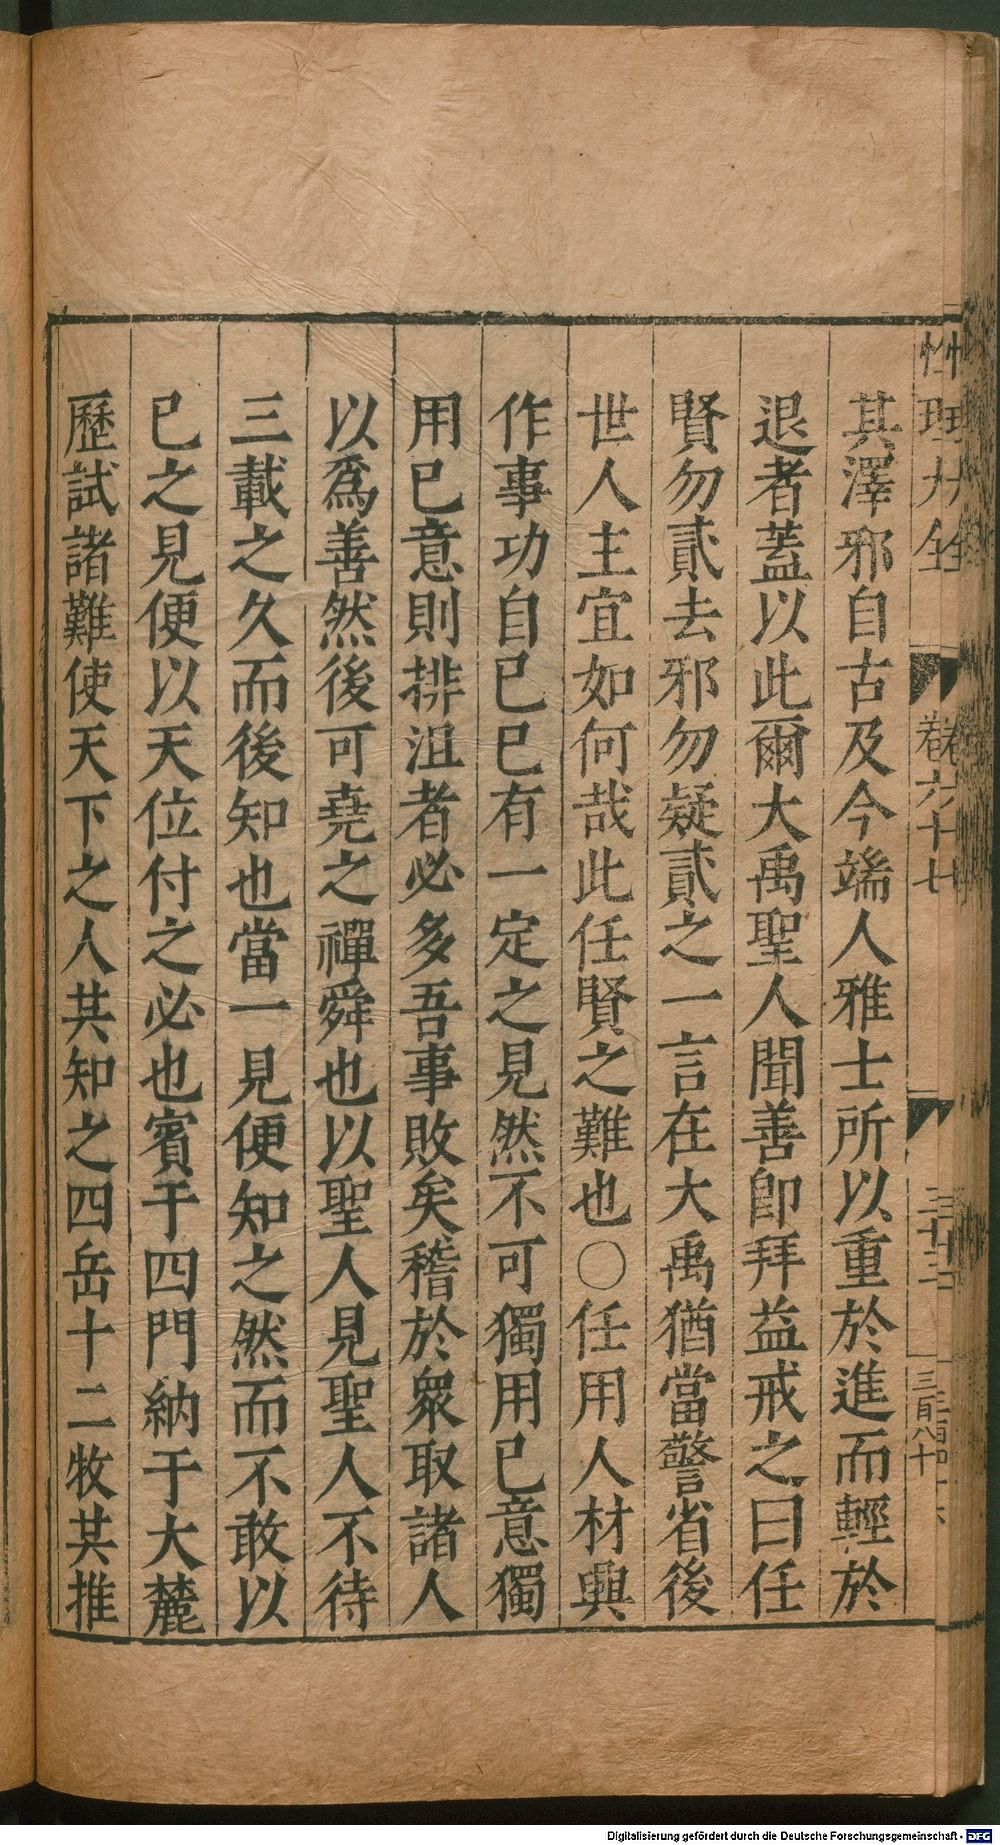 其澤邪自古及今端人雅士所以重於進而輕於
退者蓋以此爾大禹聖人聞善卽拜益戒之曰任
賢勿貳去邪勿疑貳之一言在大禹猶當警省後
世人主宜如何哉此任賢之難也○任用人材興
作事功自已已有一定之見然不可獨用已意獨
用已意則排沮者必多吾事敗矣稽於衆取諸人
以爲善然後可堯之禪舜也以聖人見聖人不待
三載之久而後知也當一見便知之然而不敢以
已之見便以天位付之必也賓于四門納于大麓
歷試諸難使天下之人共知之四岳十二牧其推
性理大全
卷六十七
三百八十
Digitalisierung gefördert durch die Deutsche Forschungsgemeinschaft - DFG